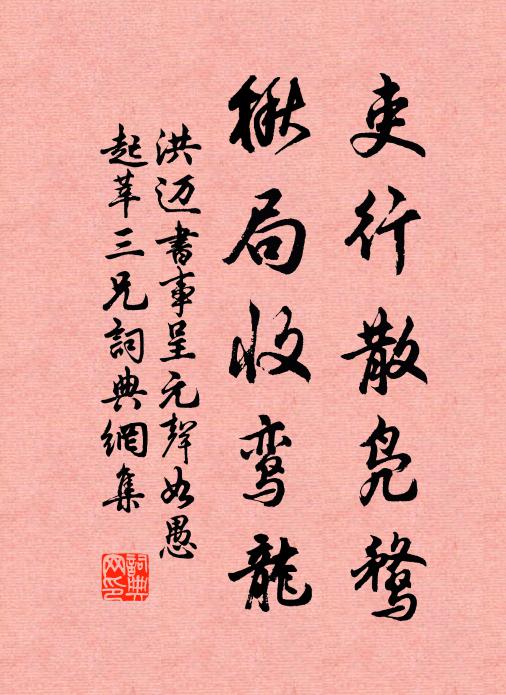 吏行散凫鹜
楸局收鸾龍
洪迈書事呈元聲如愚
起莘三兄詞典網集
詞典网印